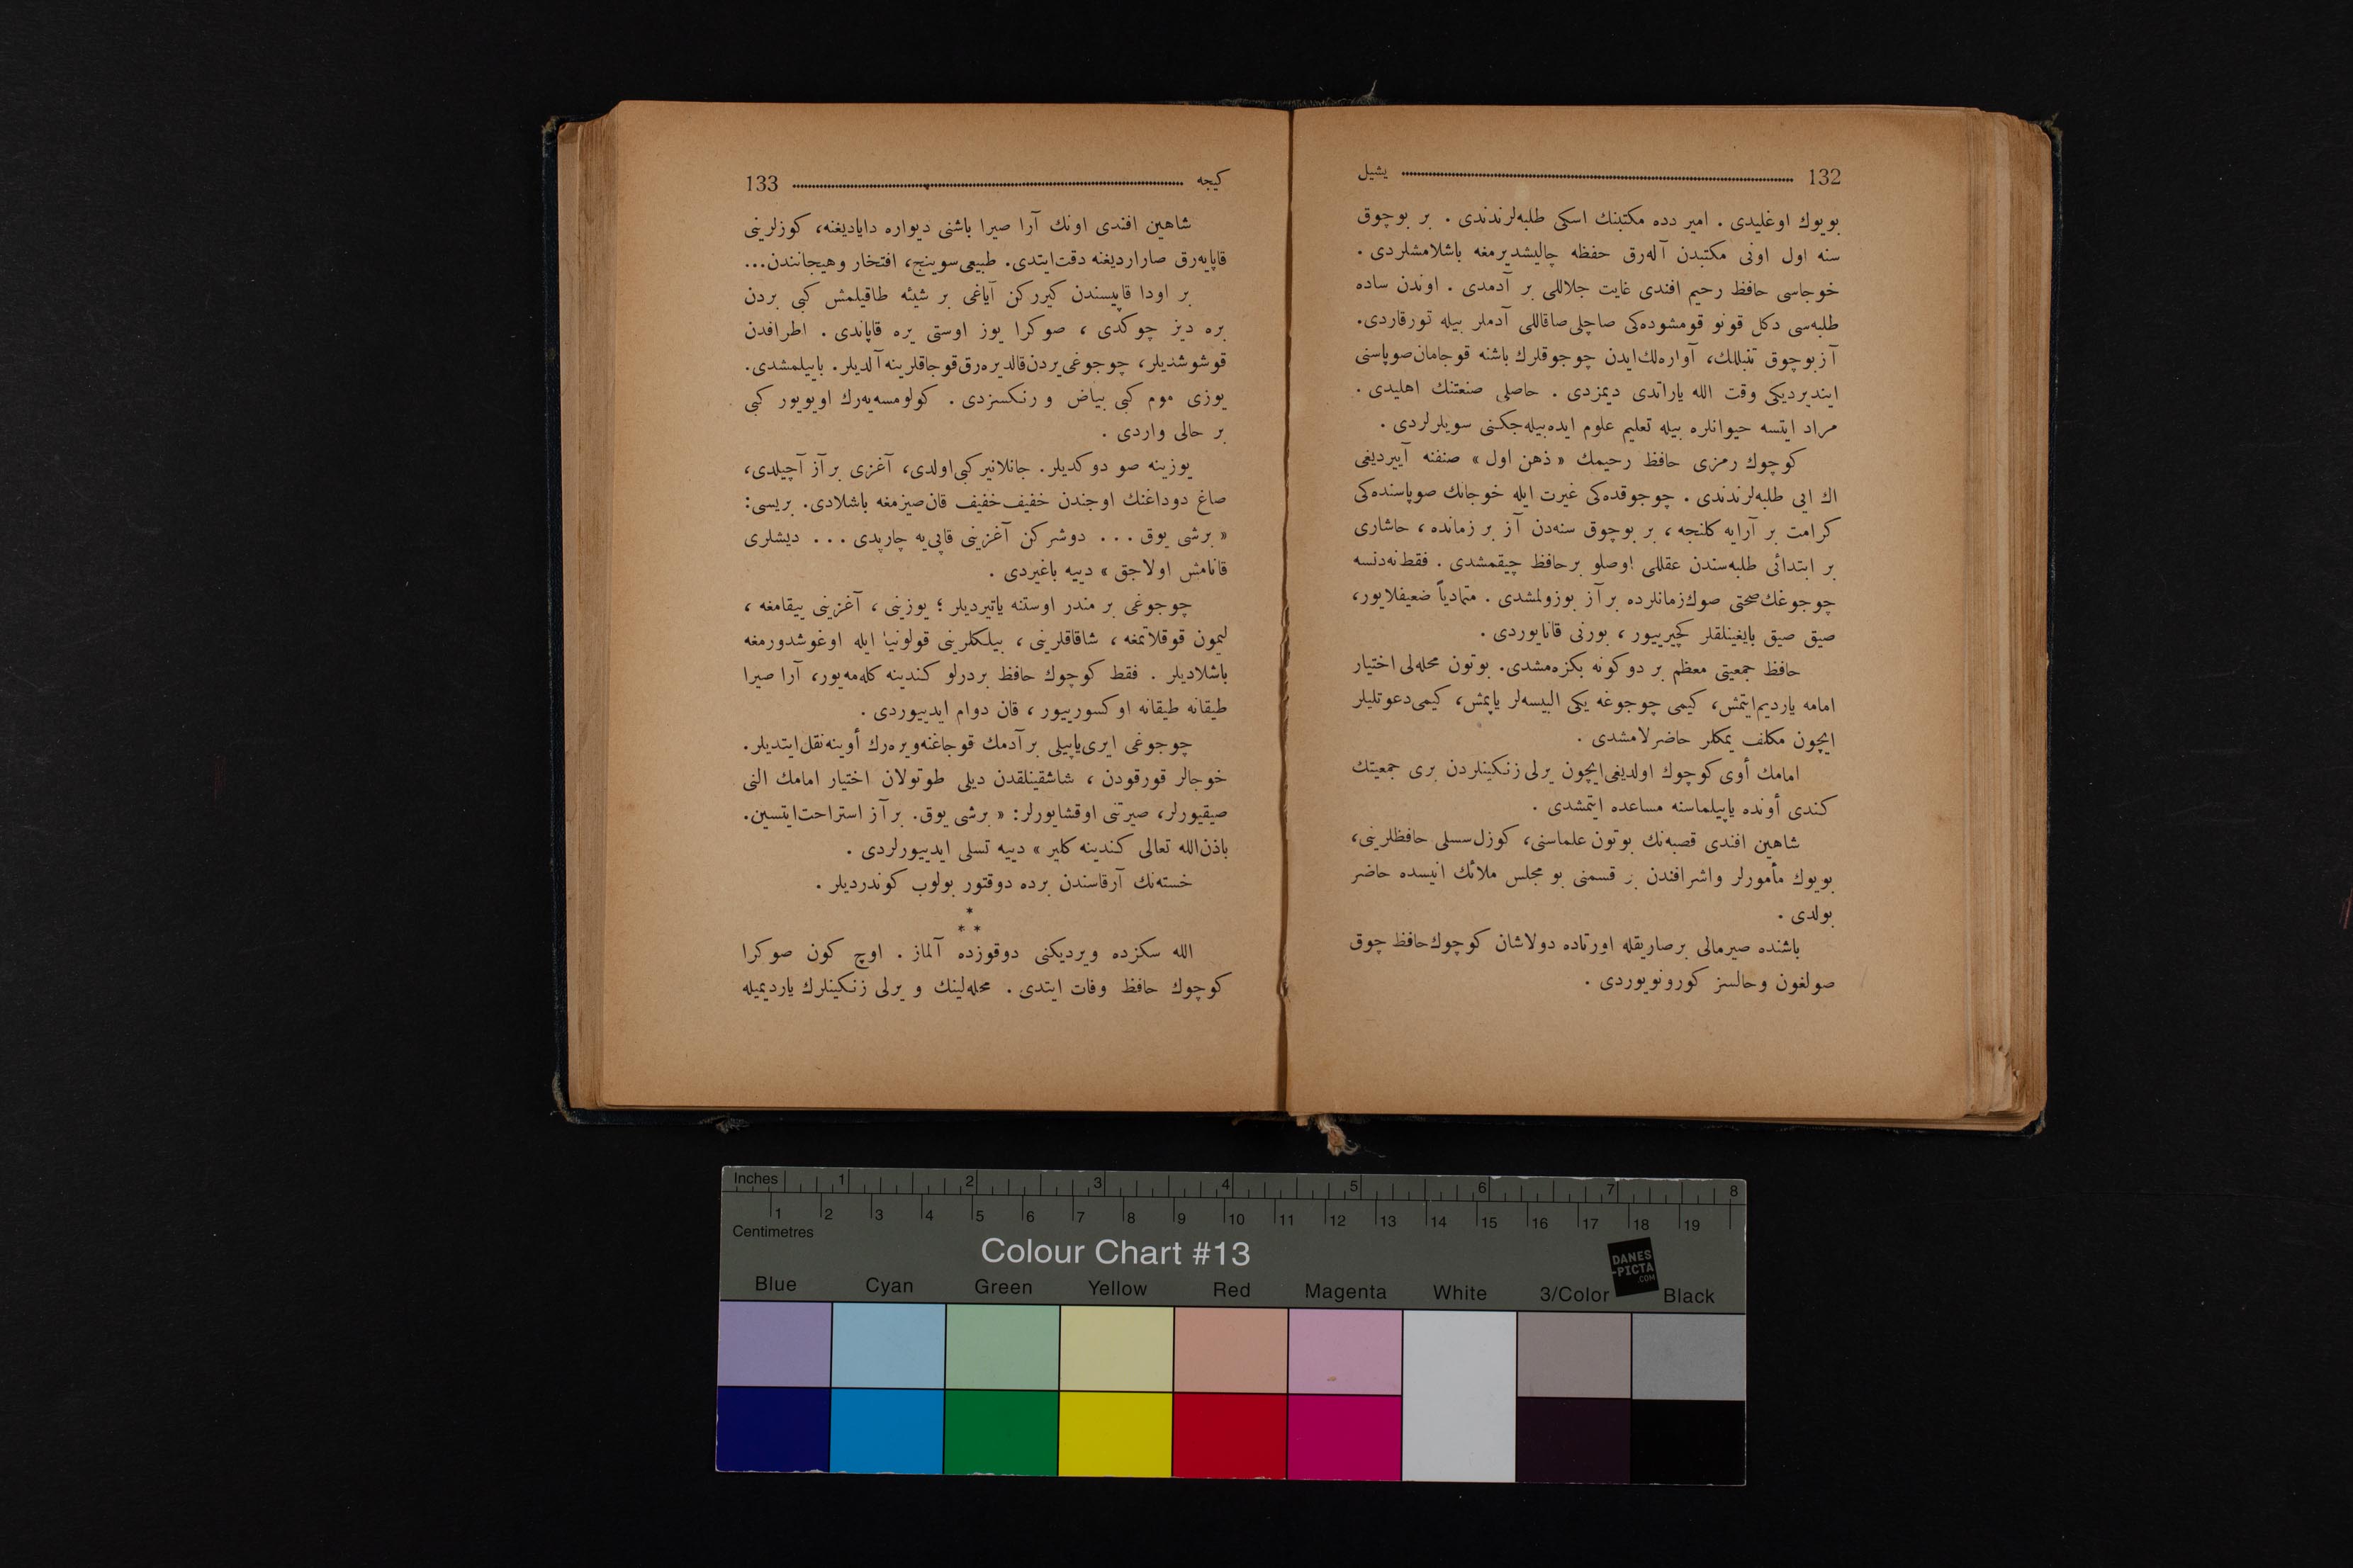 132 يشيل
بويوك اوغليدى . امير دده مكتبنك اسكى طلبه‌لرندندى . بر بوچوق
سنه اول اونى مكتبدن آله‌رق حفظه چاليشديرمغه باشلامشلردى .
خوجاسى حافظ رحيم افندى غايت جلاللى بر آدمدى . اوندن ساده
طلبه‌سى دكل قونو قومشوده‌كى صاچلى صاقاللى آدملر بيله تورقاردى.
آز بوچوق تنبللك، آواره‌لك ايدن چوجوقلرك باشنه قوجامان صوپاسنى
اينديرديكى وقت الله ياراتدى ديمزدى . حاصلى صنعتنك اهليدى .
مراد ايتسه حيوانلره بيله تعليم علوم ايده‌بيله‌جكنى سويلرلردى .
كوچوك رمزى حافظ رحيمك « ذهن اول » صنفنه آييرديغى
اك ايى طلبه‌لرندندى . چوجوقده‌كى غيرت ايله خوجانك صوپاسنده‌كى
كرامت بر آرايه كلنجه ، بر بوچوق سنه‌دن آز بر زمانده ، حاشارى
بر ابتدائى طلبه‌سندن عقللى اوصلو برحافظ چيقمشدى . فقط نه‌دنسه
چوجوغك صحتى صوك زمانلرده بر آز بوزولمشدى . متمادياً ضعيفلايور،
صيق صيق بايغينلقلر كچيرييور ، بورنى قانايوردى .
حافظ جمعيتى معظم بر دوكونه بكزه‌مشدى. بوتون محله‌لى اختيار
امامه يارديم ايتمش، كيمى چوجوغه يكى البيسه‌لر ياپمش، كيمى دعوتليلر
ايچون مكلف يمكلر حاضرلامشدى .
امامك أوى كوچوك اولديغى ايچون يرلى زنكينلردن برى جمعيتك
كندى أونده ياپيلماسنه مساعده ايتمشدى .
شاهين افندى قصبه‌نك بوتون علماسنى، كوزل سسلى حافظلرينى،
بويوك مأمورلر واشرافندن بر قسمنى بو مجلس ملائك انيسده حاضر
بولدى .
باشنده صيرمالى برصاريقله اورتاده دولاشان كوچوك حافظ چوق
صولغون وحالسز كورونويوردى .
كيجه 133
شاهين افندى اونك آرا صيرا باشنى ديواره داياديغنه، كوزلرينى
قاپايه‌رق صارارديغنه دقت ايتدى. طبيعى سوينج، افتخار وهيجانندن...
بر اودا قاپيسندن كيرركن آياغى بر شيئه طاقيلمش كبى بردن
بره ديز چوكدى ، صوكرا يوز اوستى يره قاپاندى . اطرافدن
قوشوشديلر، چوجوغى يردن قالديره‌رق قوجاقلرينه آلديلر. باييلمشدى.
يوزى موم كبى بياض و رنكسزدى . كولومسه‌يه‌رك اويويور كبى
بر حالى واردى .
يوزينه صو دوكديلر. جانلانير كبى اولدى، آغزى بر آز آچيلدى،
صاغ دوداغنك اوجندن خفيف خفيف قان صيزمغه باشلادى. بريسى:
« برشى يوق ... دوشركن آغزينى قاپى‌يه چارپدى ... ديشلرى
قانامش اولاجق » دييه باغيردى .
چوجوغى بر مندر اوستنه ياتيرديلر ؛ يوزينى ، آغزينى ييقامغه ،
ليمون قوقلاتمغه ، شاقاقلرينى ، بيلكلرينى قولونيا ايله اوغوشدورمغه
باشلاديلر . فقط كوچوك حافظ بردرلو كندينه كله‌مه‌يور، آرا صيرا
طيقانه طيقانه اوكسورييور ، قان دوام ايدييوردى .
چوجوغى ايرى ياپيلى بر آدمك قوجاغنه ويره‌رك أوينه نقل ايتديلر.
خوجالر قورقودن ، شاشقينلقدن ديلى طوتولان اختيار امامك النى
صيقيورلر، صيرتنى اوقشايورلر: « برشى يوق. بر آز استراحت ايتسين.
باذن الله تعالى كندينه كلير » دييه تسلى ايدييورلردى .
خسته‌نك آرقاسندن برده دوقتور بولوب كوندرديلر .
*
* *
الله سكزده ويرديكنى دوقوزده آلماز . اوچ كون صوكرا
كوچوك حافظ وفات ايتدى . محله‌لينك و يرلى زنكينلرك يارديميله
Inches 1 2 3 4 5 6 7 8
1 2 3 4 5 6 7 8 9 10 11 12 13 14 15 16 17 18 19
Centimetres
Colour Chart #13
DANES
-PICTA
.COM
Blue Cyan Green Yellow Red Magenta White 3/Color Black